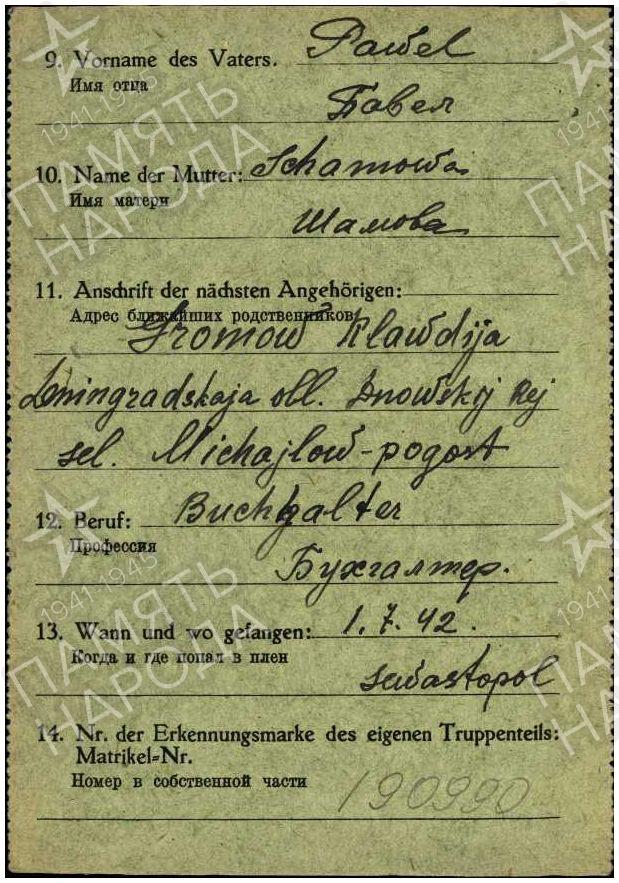 9. Vorname des Vaters. Pawel
Имя отца
Павел
10. Name der Mutter: Schamowa
Имя матери
Шамова
11. Anschrift der nächsten Angehörigen:
Адрес ближайших родственников
Gromow Klawdija
Leningradskaja obl. Dnowskij Rej
sel. Michajlow-pogost
12. Beruf: Buchhalter
Профессия
Бухгалтер.
13. Wann und wo gefangen: 1.7.42.
Когда и где попал в плен
Sewastopol
14. Nr. der Erkennungsmarke des eigenen Truppenteils:
Matrikel=Nr.
Номер в собственной части
190990
1941 1945
ПАМЯТЬ
НАРОДА
1941 1945
ПАМЯТЬ
НАРОДА